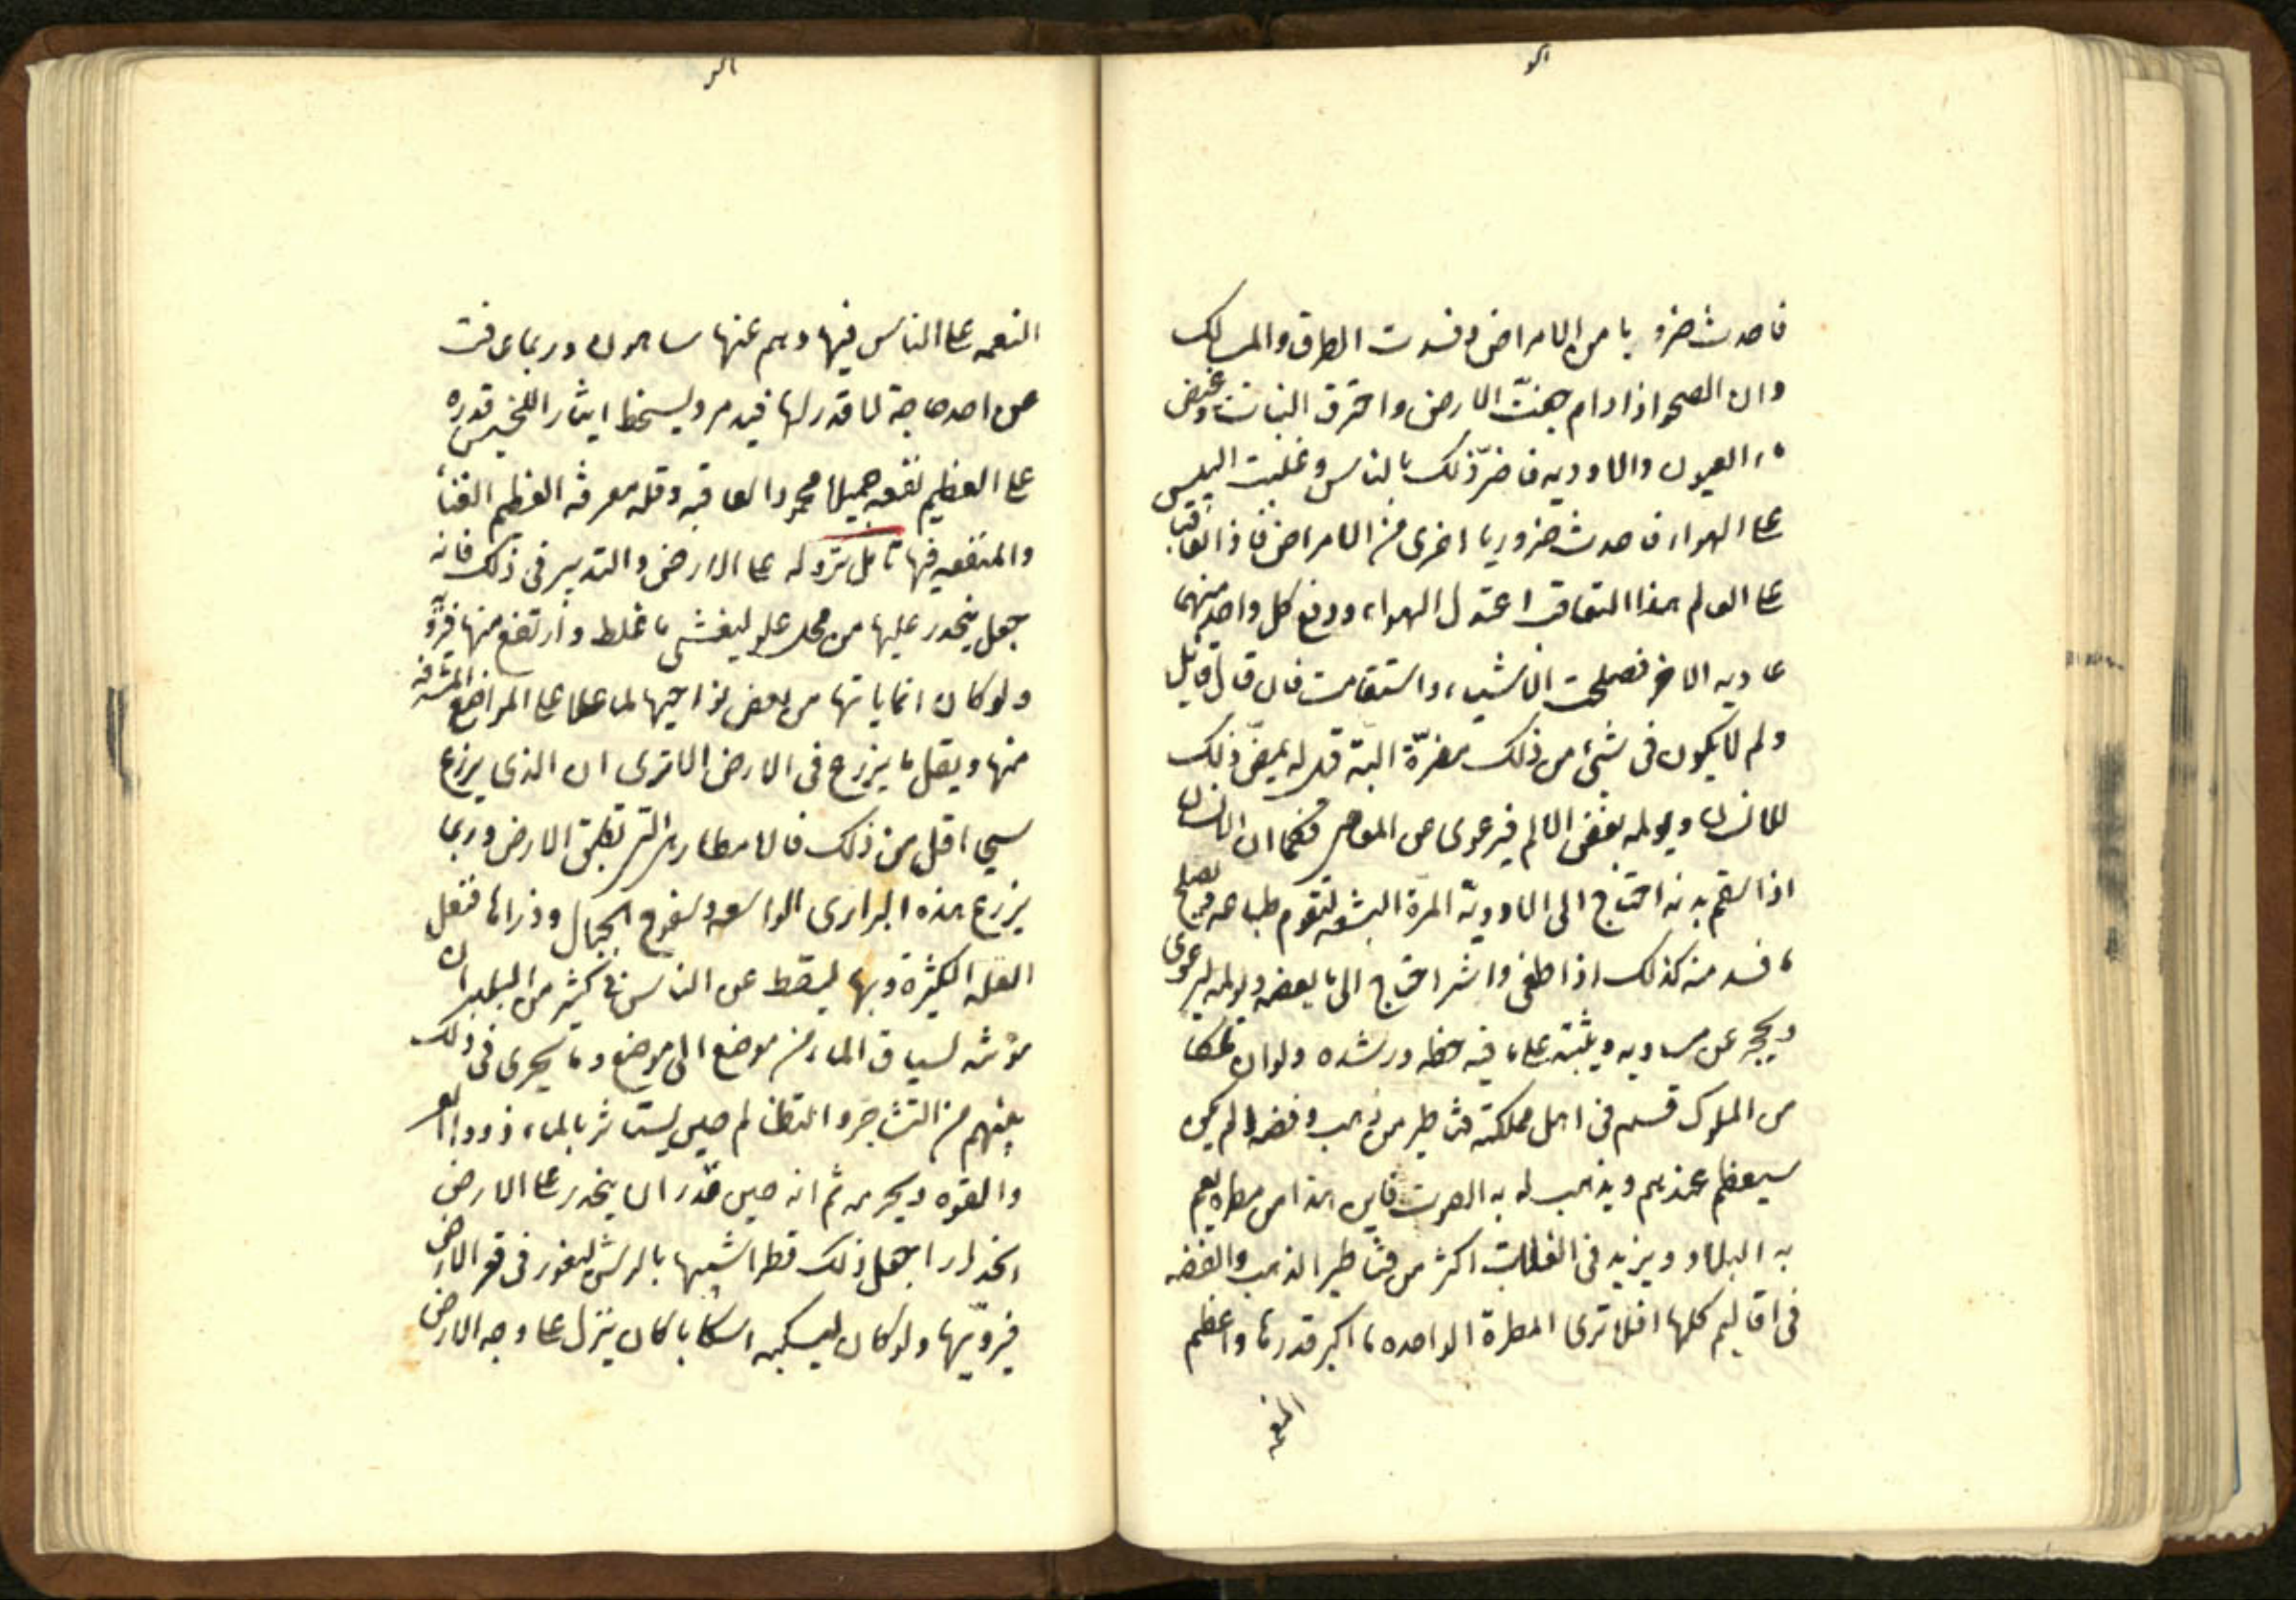 فاحدث ضروبا من الامراض وفسدت الطرق والمسالك
وان الصحو اذا دام جفت الارض واحترق النبات وغيض
ماء العيون والاودية فاضرّ ذلك بالناس وغلبت اليبس
على الهواء فاحدث ضروربا اخرى من الامراض فاذا تعاقبا
على العالم هذا التعاقب اعتدل الهواء ودفع كل واحد منهما
عادية الاخر فصلحت الاشياء واستقامت فان قال قائل
ولم لا يكون فى شئ من ذلك مضرّة البتة قيل له ليمضّ ذلك
للانسان ويولمه بعض الالم فيرعوى عن المعاصى فكما ان الانسان
اذا سقم بدنه احتاج الى الادوية المرة البشعه لتقوم طباعه ويصلح
ما فسد منه كذلك اذا طغى واشر احتاج الى ما يعضه ويولمه ليرعوى
ويحجر عن مساويه ويثبته على ما فيه حظه ورشده ولو ان ملكا
من الملوك قسم فى اهل مملكته قناطير من ذهب وفضه الم يكن
سيعظم عندهم ويذهب له به الصوت فاين هذا من مطرة يعم
به البلاد ويزيد فى الغلات اكثر من قناطير الذهب والفضه
فى اقاليم كلها افلا ترى المطرة الواحده ما اكبر قدرها واعظم
النعمه
النعمه على الناس فيها وهم عنها ساهون وربما عاقت
عن احد حاجة لا قدر لها فيذمر ويسخط ايثارا للخسيس قدره
على العظيم نفعه جميلا محمود العاقبه وقله معرفه العظيم الغناء
والمنفعه فيها تامل نزوله على الارض والتدبير فى ذلك فانه
جعل ينحدر عليها من محل علو ليغشى ما غلظ وارتفع منها فيروّ
ولو كان انما ياتها من بعض نواحيها لما علا على المواضع المشرفه
منها ويقل ما يزرع فى الارض الا ترى ان الذى يزرع
سيحا اقل من ذلك فالامطار هى التى تطبق الارض وربما
يزرع هذه البرارى الواسعه وسفوح الجبال وذراها فتغل
الغله الكثيرة وبها يسقط عن الناس فى كثير من البلدان
مؤنه لسياق الماء من موضع الى موضع وما يجرى فى ذلك
بينهم من التشاجر والتظالم حين يستاثر بالماء ذووا العز
والقوه ويحرمه ثم انه حين قدّر ان ينحدر على الارض
انحدارا جعل ذلك قطرا شبيها بالرش ليغور فى قعر الارض
فيروّيها ولو كان ليسكبه اسكابا كان ينزل على وجه الارض